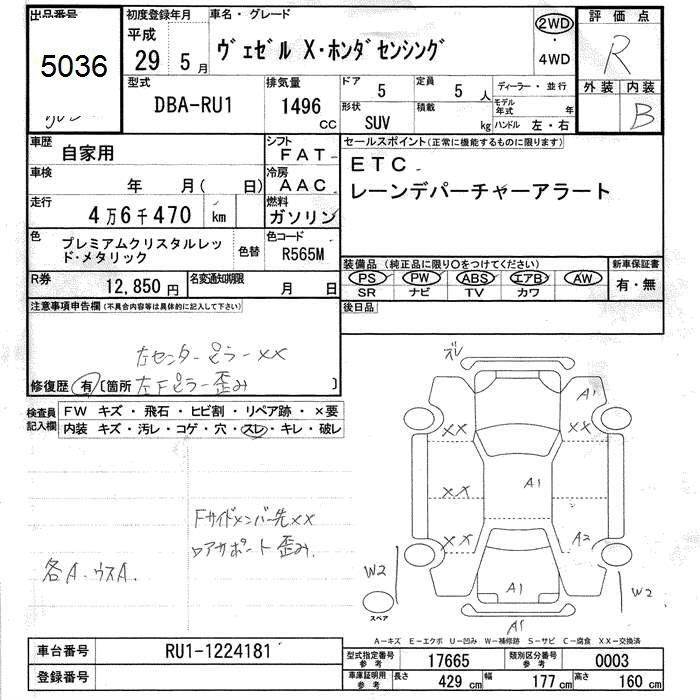 出品番号
5036
初度登録年月
平成
29年 5月
車名・グレード
ヴェゼル X・ホンダセンシング
2WD
・
4WD
評価点
R
外装 内装
B
型式
DBA-RU1
排気量
1496 cc
ドア 5
定員 5 人
形状 SUV
積載 kg
ディーラー・並行
モデル年式 年
ハンドル 左・右
車歴 自家用
シフト FAT
車検 年 月( 日)
冷房 AAC
走行 4万6千470 km
燃料 ガソリン
色 プレミアムクリスタルレッド・メタリック
色替
色コード R565M
R券 12,850円
名変通知期限 月 日
セールスポイント(正常に機能するものに限ります)
ETC
レーンデパーチャーアラート
装備品(純正品に限り○をつけてください)
PS PW ABS エアB AW
SR ナビ TV カワ
新車保証書
有・無
後日品
注意事項申告欄(不具合内容等は具体的に記入して下さい)
左センターピラーXX
修復歴 有 〔箇所 左Fピラー歪み 〕
検査員記入欄
FW キズ・飛石・ヒビ割・リペア跡・×要
内装 キズ・汚レ・コゲ・穴・スレ・キレ・破レ
Fサイドメンバー先XX
ロアサポート歪み.
各A.ウスA.
ズレ
A1
XX
XX
XX
A1
XX
A2
W2
W2
A1
A1
スペア
A-キズ E-エクボ U-凹み W-補修跡 S-サビ C-腐食 XX-交換済
車台番号 RU1-1224181
登録番号
型式指定番号 参考 17665
類別区分番号 参考 0003
車庫証明用 参考 長さ 429 cm 幅 177 cm 高さ 160 cm